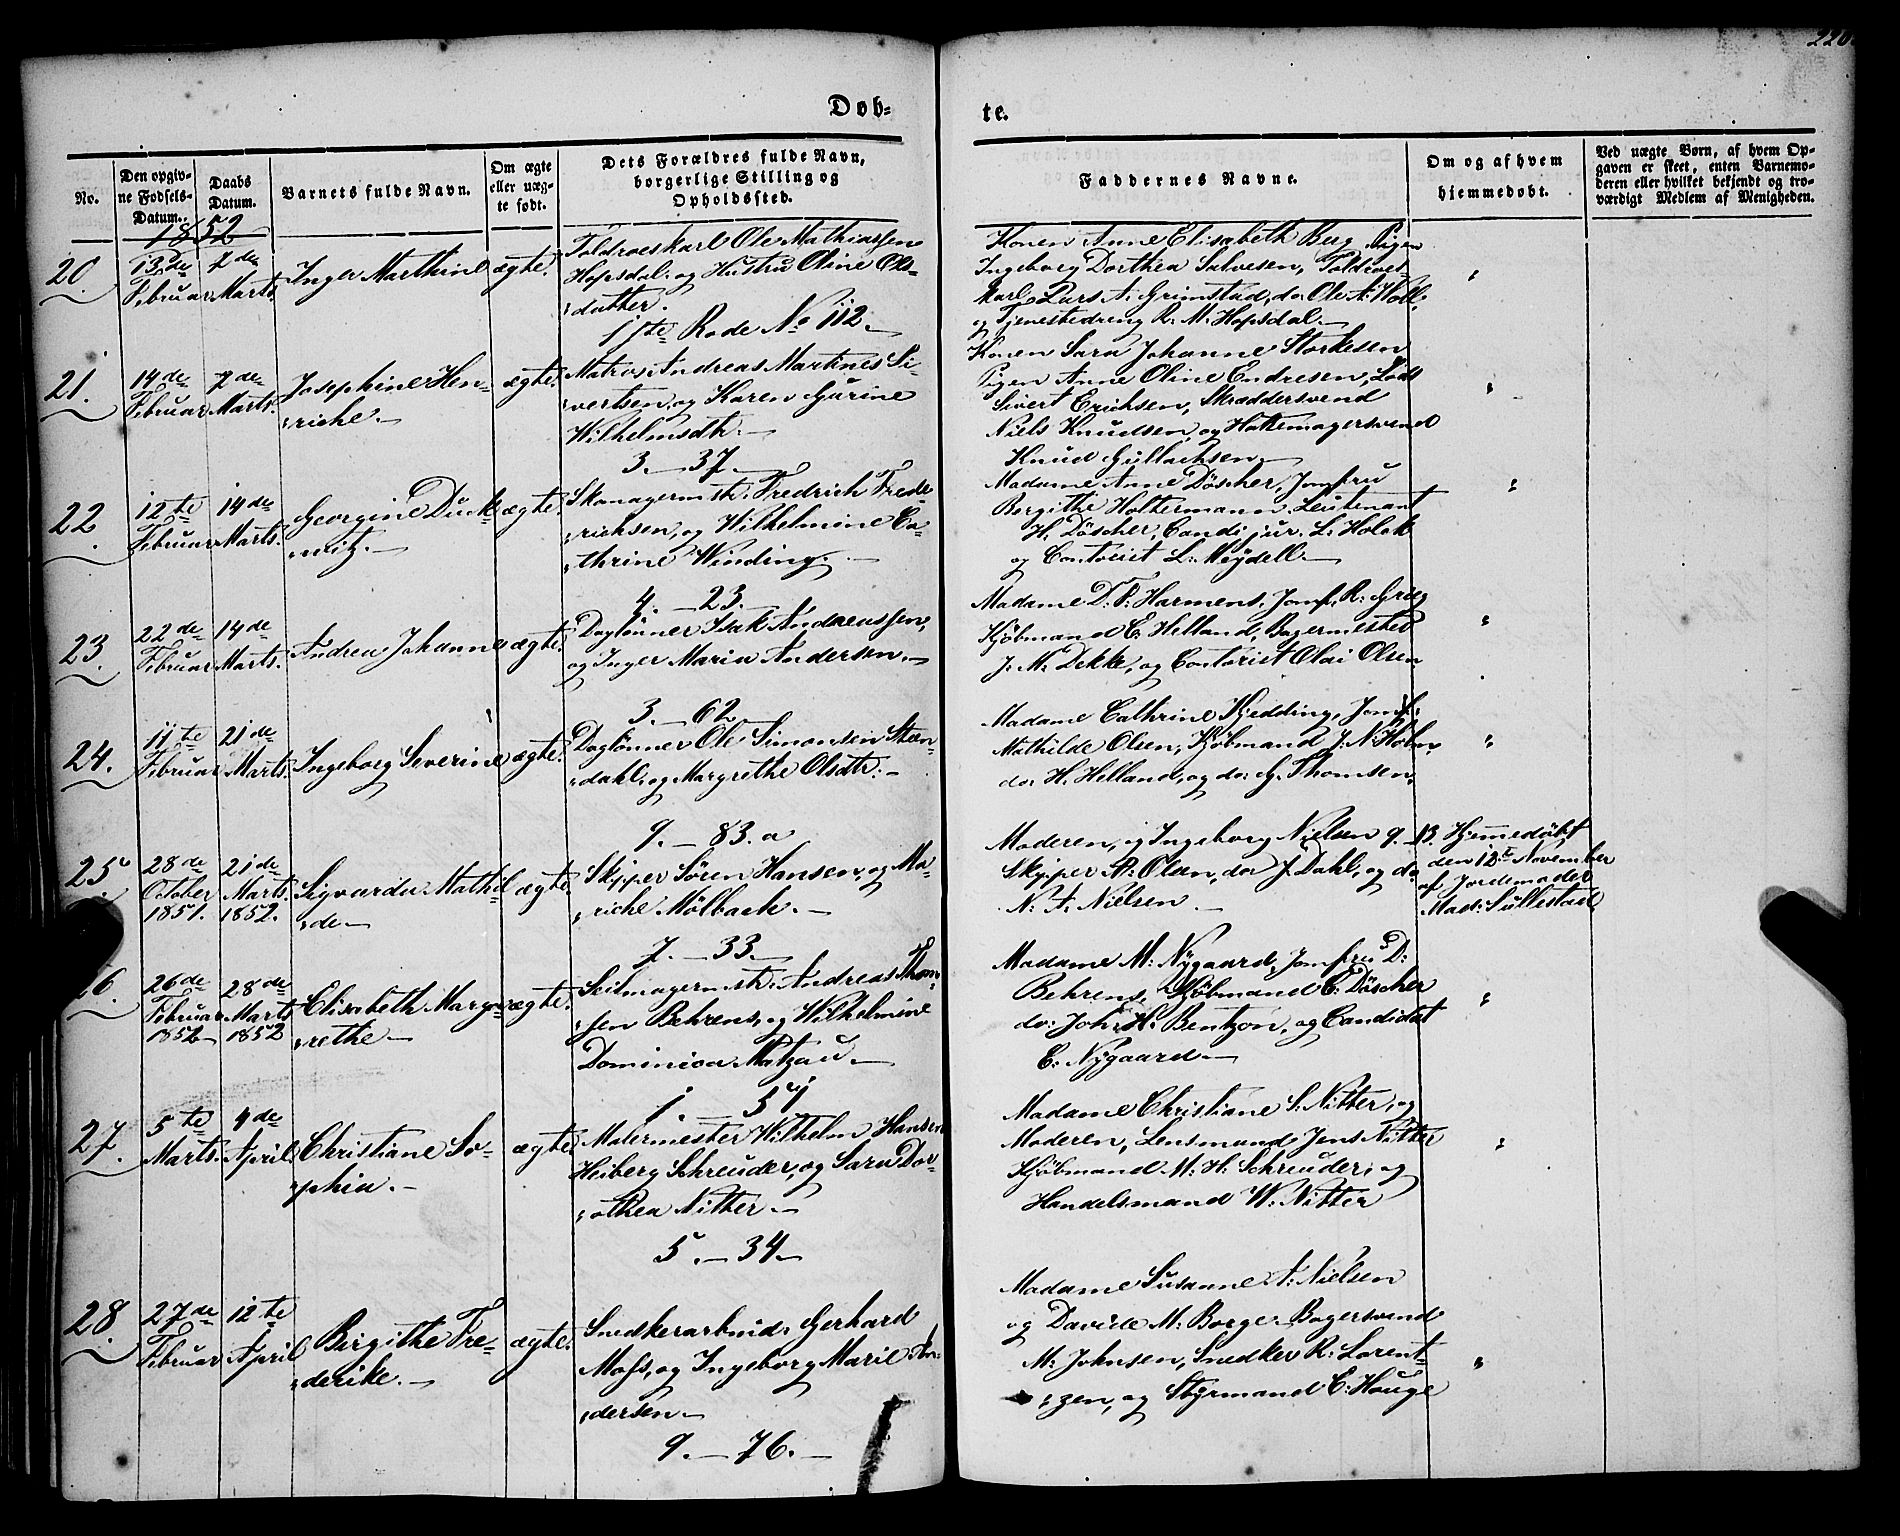 226.
Døb-
te.
No.
Den opgiv-
ne Fødsels-
Datum.
Daabs
Datum.
Barnets fulde Navn.
Om ægte
eller uæg-
te født.
Dets Forældres fulde Navn,
borgerlige Stilling og
Opholdssted.
Faddernes Navne.
Om og af hvem
hjemmedøbt.
Ved uægte Børn, af hvem Op-
gaven er skeet, enten Barnemo-
deren eller hvilket bekjendt og tro-
værdigt Medlem af Menigheden.
1852
20.
13de
Februar
7de
Marts
Inger Marthine
ægte.
Toldroeskarl Ole Mathiassen
Hopsdal og Hustru Oline Ols-
datter.
11te Rode No 112.
Konen Anne Elisabeth Berg, Pigen
Ingeborg Dorthea Salvesen, Toldroes-
karl Lars A. Grimstad, do Ole A. Woll,
og Tjenestedreng R. M. Hopsdal.
21.
14de
Februar
7de
Marts.
Josephine Hen-
riche.
ægte.
Matros Andreas Martinus Si-
vertsen, og Karen Gurine
Wilhelmsdtr.
3. - 37.
Konen Sara Johanne Storkesen
Pigen Anne Oline Endresen, Lods
Sivert Erichsen, Skræddersvend
Niels Knudsen, og Hattemagersvend
Knud Gullachsen.
22.
12te
Februar
14de
Marts.
Georgine Duck-
witz.
ægte.
Skomagermstr. Fredrich Frede-
richsen, og Wilhelmine Ca-
thrine Winding.
4. - 23.
Madame Anne Döscher, Jomfru
Bergithe Holtermann, Leutenant
H. Döscher, Candi: jur. L. Holck
og Contorist L. Meydell.
23.
22de
Februar
14de
Marts.
Andrea Johanne
ægte.
Daglønner Isak Andreassen,
og Inger Maria Andersen.
3. - 62
Madame D. F. Harmens, Jomf. R. Grieg
Kjøbmand C. Helland, Bagermester
J. M. Dekke, og Contorist Olai Olsen
24.
11te
Februar
21de
Marts.
Ingeborg Severine
ægte.
Daglønner Ole Simonsen Sten-
dahl, og Margrethe Olsdtr.
9. - 83. a
Madame Cathrine Kjedding, Jomf:
Mathilde Olsen, Kjøbmand J. N. Holm,
do. H. Helland, og do: G. Thomsen,
25
28de
October
1851.
21de
Marts
1852.
Sigvarda Mathil-
de
ægte.
Skipper Søren Hansen, og Ma-
riche Mølbach.
7. - 33.
Moderen, og Ingeborg Nielsen 9. 13.
Skipper A. Olsen, do J. Dahl, og do
N. A. Nielsen
Hjemmedøbt
den 12te November
af Jordemoder
Mad: Sullestad
26
26de
Februar
1852
28de
Marts
1852
Elisabeth Marg-
rethe
ægte.
Seilmagermstr. Andreas Thom-
sen Behrens, og Wilhelmine
Dominica Matzau.
1. 57
Madame M. Nygaard, Jomfru D:
Behrens, Kjøbmand C. Döscher
do: Joh. H. Bentzon, og Candidat
C. Nygaard
27.
5te
Marts.
4de
April.
Christiane So-
phia.
ægte
Malermester Wilhelm Hansen
Heiberg Schreuder, og Sara Dor-
othea Nitter.
5. - 34
Madame Christiane S. Nitter, og
Moderen, Lensmand Jens Nitter
Kjøbmand M. H. Schreuder, og
Handelsmand W. Nitter
28.
27de
Februar
12te
April
Birgithe Fre-
derike.
ægte.
Snedkerarbeid. Gerhard
Moss, og Ingeborg Marie An-
dersen.
9. - 76.
Madame Susanne A. Nielsen
og Davide M. Borge, Bagersvend
M. Johnsen, Snedker R. Lorent-
zen, og Styrmand C. Hauge